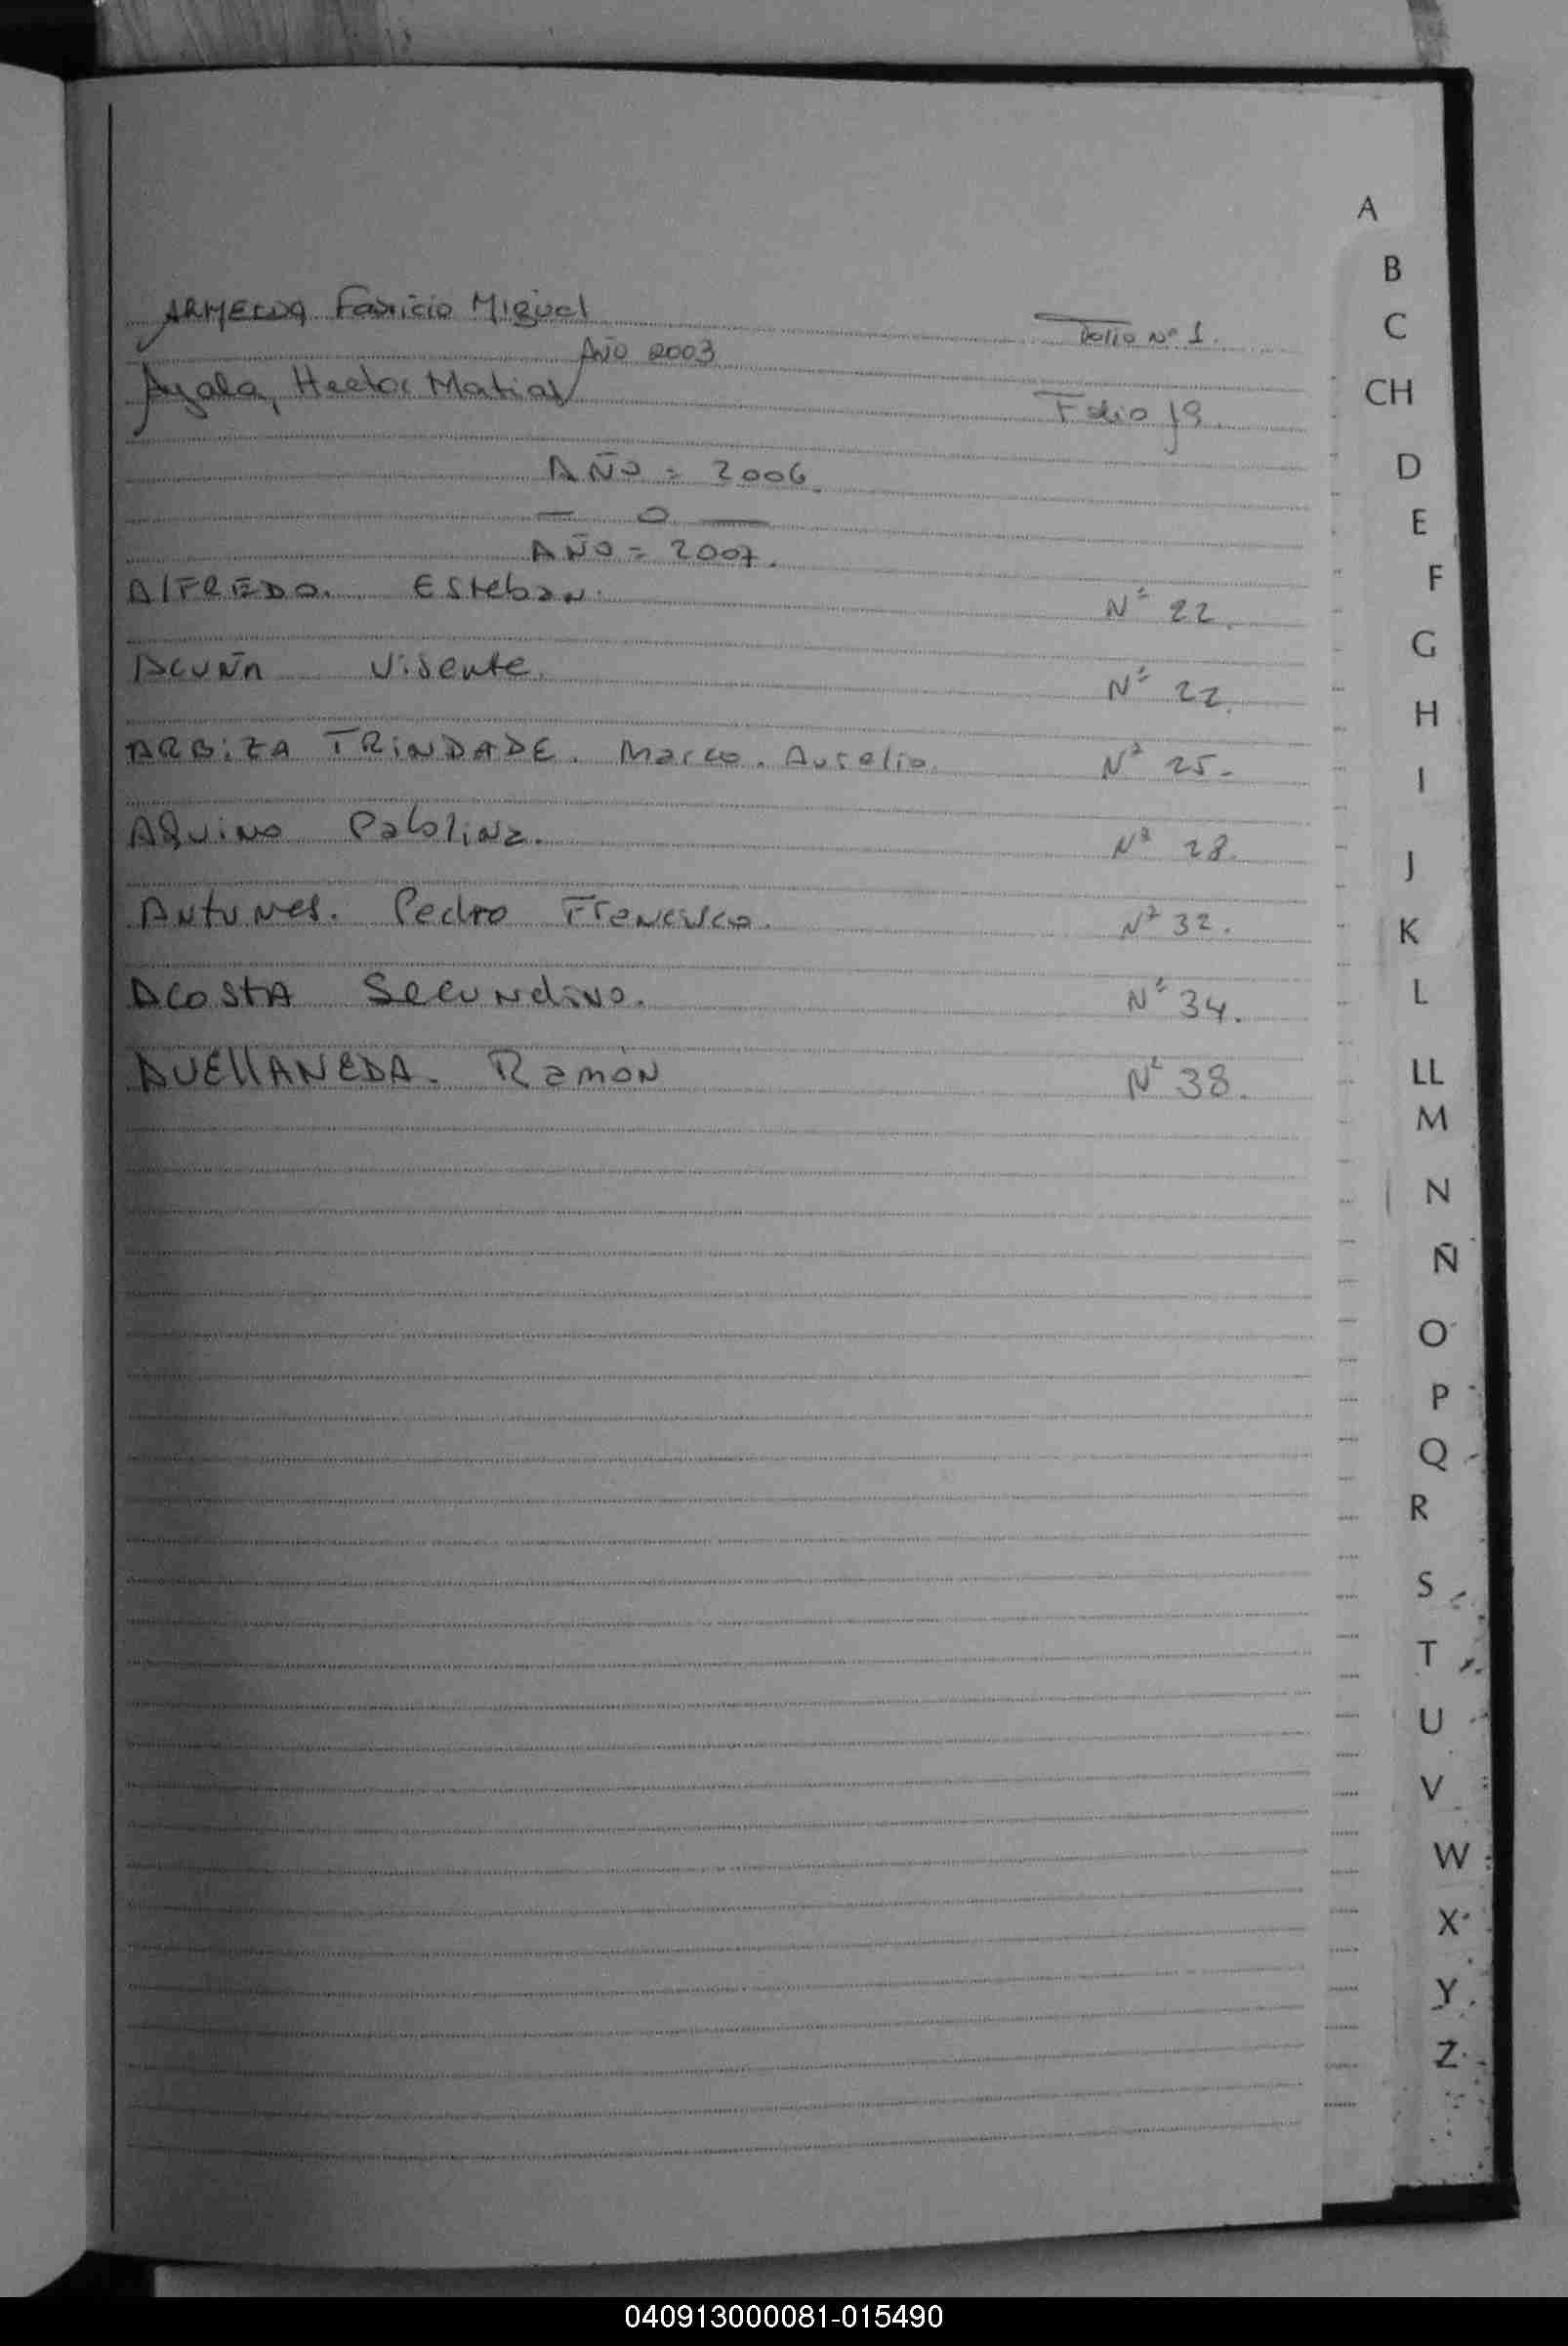 ARMELLA Fabricio Miguel Folio Nº 1.
AÑO 2003
Ayala, Hector Matias Folio 19.
AÑO = 2006.
— o —
AÑO = 2007.
AlFREDO. Esteban. Nº 22.
Acuña Visente. Nº 22.
ARBiZA TRiNDADE. Marco. Aurelio. Nº 25.
AQuino Pabolina. Nº 28.
Antunes. Pedro Francisco. Nº 32.
Acosta Secundino. Nº 34.
AVEllANEDA. Ramón Nº 38.
A
B
C
CH
D
E
F
G
H
I
J
K
L
LL
M
N
Ñ
O
P
Q
R
S
T
U
V
W
X
Y
Z
040913000081-015490